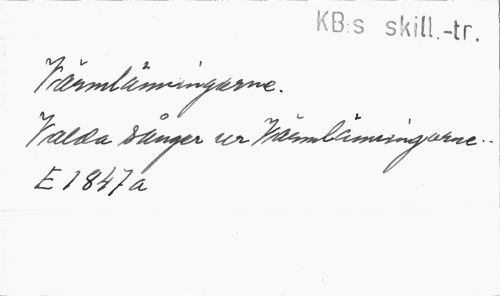 KB:s skill.-tr.
Värmlänningarne.
Valda sånger ur Värmlänningarne..
E 1847a